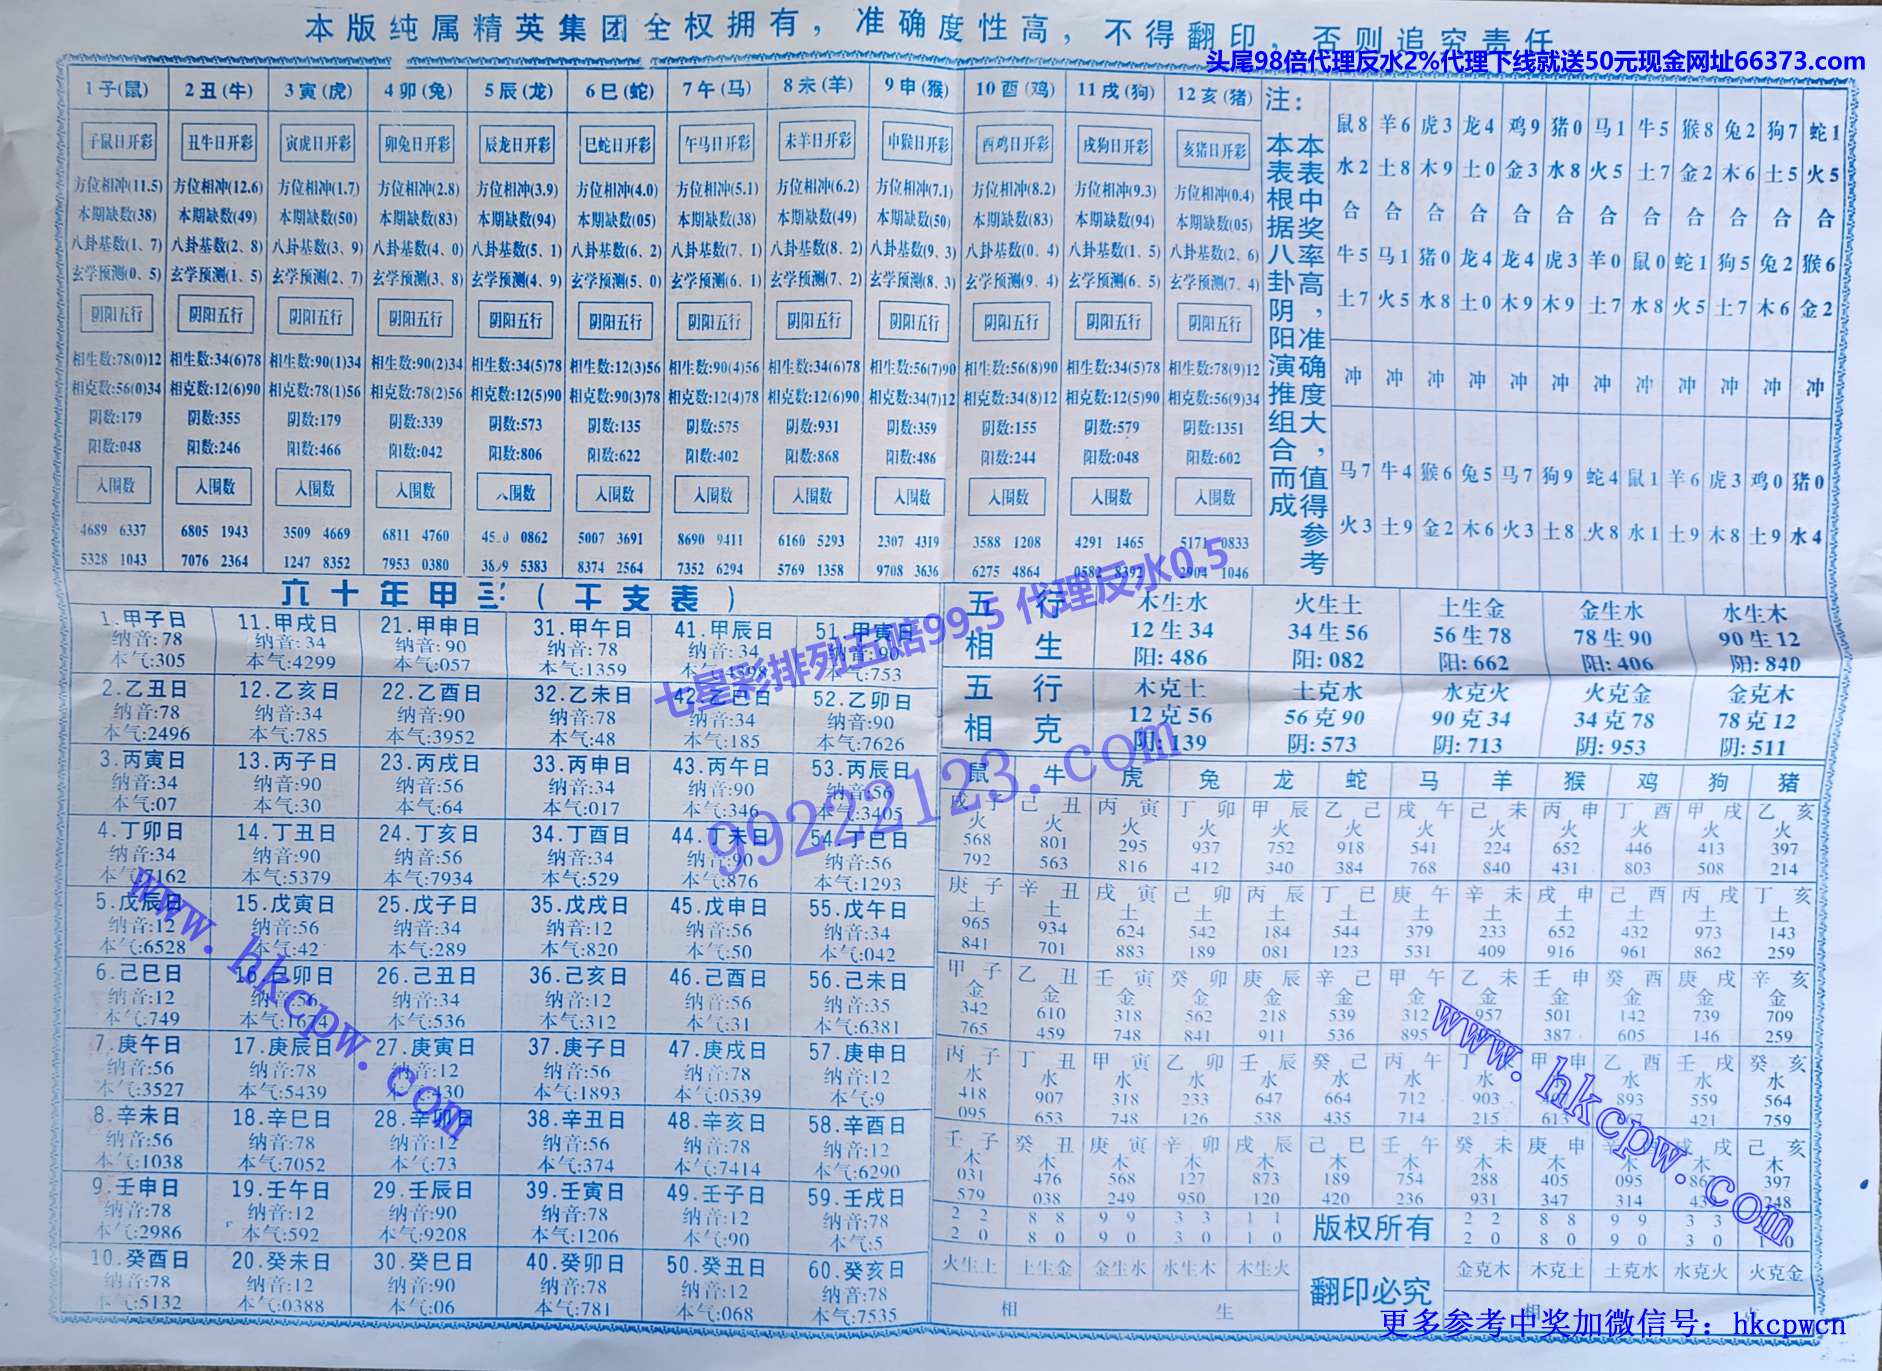 本版纯属精英集团全权拥有，准确度性高，不得翻印，否则追究责任
头尾98倍代理反水2%代理下线就送50元现金网址66373.com
1子(鼠) 2丑(牛) 3寅(虎) 4卯(兔) 5辰(龙) 6巳(蛇) 7午(马) 8未(羊) 9申(猴) 10酉(鸡) 11戌(狗) 12亥(猪)
子鼠日开彩 丑牛日开彩 寅虎日开彩 卯兔日开彩 辰龙日开彩 巳蛇日开彩 午马日开彩 未羊日开彩 申猴日开彩 酉鸡日开彩 戌狗日开彩 亥猪日开彩
方位相冲(11.5) 方位相冲(12.6) 方位相冲(1.7) 方位相冲(2.8) 方位相冲(3.9) 方位相冲(4.0) 方位相冲(5.1) 方位相冲(6.2) 方位相冲(7.1) 方位相冲(8.2) 方位相冲(9.3) 方位相冲(0.4)
本期缺数(38) 本期缺数(49) 本期缺数(50) 本期缺数(83) 本期缺数(94) 本期缺数(05) 本期缺数(38) 本期缺数(49) 本期缺数(50) 本期缺数(83) 本期缺数(94) 本期缺数(05)
八卦基数(1、7) 八卦基数(2、8) 八卦基数(3、9) 八卦基数(4、0) 八卦基数(5、1) 八卦基数(6、2) 八卦基数(7、1) 八卦基数(8、2) 八卦基数(9、3) 八卦基数(0、4) 八卦基数(1、5) 八卦基数(2、6)
玄学预测(0、5) 玄学预测(1、5) 玄学预测(2、7) 玄学预测(3、8) 玄学预测(4、9) 玄学预测(5、0) 玄学预测(6、1) 玄学预测(7、2) 玄学预测(8、3) 玄学预测(9、4) 玄学预测(6、5) 玄学预测(7、4)
阴阳五行 阴阳五行 阴阳五行 阴阳五行 阴阳五行 阴阳五行 阴阳五行 阴阳五行 阴阳五行 阴阳五行 阴阳五行 阴阳五行
相生数:78(0)12 相生数:34(6)78 相生数:90(1)34 相生数:90(2)34 相生数:34(5)78 相生数:12(3)56 相生数:90(4)56 相生数:34(6)78 相生数:56(7)90 相生数:56(8)90 相生数:34(5)78 相生数:78(9)12
相克数:56(0)34 相克数:12(6)90 相克数:78(1)56 相克数:78(2)56 相克数:12(5)90 相克数:90(3)78 相克数:12(4)78 相克数:12(6)90 相克数:34(7)12 相克数:34(8)12 相克数:12(5)90 相克数:56(9)34
阴数:179 阴数:355 阴数:179 阴数:339 阴数:573 阴数:135 阴数:575 阴数:931 阴数:359 阴数:155 阴数:579 阴数:1351
阳数:048 阳数:246 阳数:466 阳数:042 阳数:806 阳数:622 阳数:402 阳数:868 阳数:486 阳数:244 阳数:048 阳数:602
入围数 入围数 入围数 入围数 入围数 入围数 入围数 入围数 入围数 入围数 入围数 入围数
4689 6337 6805 1943 3509 4669 6811 4760 0862 5007 3691 8690 9411 6160 5293 2307 4319 3588 1208 4291 1465 5171 0833
5328 1043 7076 2364 1247 8352 7953 0380 5383 8374 2564 7352 6294 5769 1358 9708 3636 6275 4864 0582 8392 2904 1046
注：
本表中奖率高，准确度大，值得参考
本表根据八卦阴阳演推组合而成
鼠8 羊6 虎3 龙4 鸡9 猪0 马1 牛5 猴8 兔2 狗7 蛇1
水2 土8 木9 土0 金3 水8 火5 土7 金2 木6 土5 火5
合 合 合 合 合 合 合 合 合 合 合 合
牛5 马1 猪0 龙4 龙4 虎3 羊0 鼠0 蛇1 狗5 兔2 猴6
土7 火5 水8 土0 木9 木9 土7 水8 火5 土7 木6 金2
冲 冲 冲 冲 冲 冲 冲 冲 冲 冲 冲 冲
马7 牛4 猴6 兔5 马7 狗9 蛇4 鼠1 羊6 虎3 鸡0 猪0
火3 土9 金2 木6 火3 土8 火8 水1 土9 木8 土9 水4
六十年甲 (干支表)
1.甲子日 11.甲戌日 21.甲申日 31.甲午日 41.甲辰日 51.甲寅日
纳音:78 纳音:34 纳音:90 纳音:78 纳音:34 纳音:90
本气:305 本气:4299 本气:057 本气:1359 本气:753
2.乙丑日 12.乙亥日 22.乙酉日 32.乙未日 42.乙巳日 52.乙卯日
纳音:78 纳音:34 纳音:90 纳音:78 纳音:34 纳音:90
本气:2496 本气:785 本气:3952 本气:48 本气:185 本气:7626
3.丙寅日 13.丙子日 23.丙戌日 33.丙申日 43.丙午日 53.丙辰日
纳音:34 纳音:90 纳音:56 纳音:34 纳音:90 纳音:56
本气:07 本气:30 本气:64 本气:017 本气:346 本气:3405
4.丁卯日 14.丁丑日 24.丁亥日 34.丁酉日 44.丁未日 54.丁巳日
纳音:34 纳音:90 纳音:56 纳音:34 纳音:90 纳音:56
本气:5379 本气:7934 本气:529 本气:876 本气:1293
5.戊辰日 15.戊寅日 25.戊子日 35.戊戌日 45.戊申日 55.戊午日
纳音:12 纳音:56 纳音:34 纳音:12 纳音:56 纳音:34
本气:6528 本气:42 本气:289 本气:820 本气:50 本气:042
6.己巳日 16.己卯日 26.己丑日 36.己亥日 46.己酉日 56.己未日
纳音:12 纳音:56 纳音:34 纳音:12 纳音:56 纳音:35
本气:749 本气:536 本气:312 本气:31 本气:6381
7.庚午日 17.庚辰日 27.庚寅日 37.庚子日 47.庚戌日 57.庚申日
纳音:56 纳音:78 纳音:12 纳音:56 纳音:78 纳音:12
本气:3527 本气:5439 本气:1893 本气:0539 本气:9
8.辛未日 18.辛巳日 28.辛卯日 38.辛丑日 48.辛亥日 58.辛酉日
纳音:56 纳音:78 纳音:12 纳音:56 纳音:78 纳音:12
本气:1038 本气:7052 本气:73 本气:374 本气:7414 本气:6290
9.壬申日 19.壬午日 29.壬辰日 39.壬寅日 49.壬子日 59.壬戌日
纳音:78 纳音:12 纳音:90 纳音:78 纳音:12 纳音:78
本气:2986 本气:592 本气:9208 本气:1206 本气:90 本气:5
10.癸酉日 20.癸未日 30.癸巳日 40.癸卯日 50.癸丑日 60.癸亥日
纳音:78 纳音:12 纳音:90 纳音:78 纳音:12 纳音:78
本气:5132 本气:0388 本气:06 本气:781 本气:068 本气:7535
五行相生 木生水 火生土 土生金 金生水 水生木
12生34 34生56 56生78 78生90 90生12
阳:486 阳:082 阳:662 阳:406 阳:840
五行相克 木克土 土克水 水克火 火克金 金克木
12克56 56克90 90克34 34克78 78克12
阴:139 阴:573 阴:713 阴:953 阴:511
鼠 牛 虎 兔 龙 蛇 马 羊 猴 鸡 狗 猪
戌子 己丑 丙寅 丁卯 甲辰 乙己 戌午 己未 丙申 丁酉 甲戌 乙亥
火 火 火 火 火 火 火 火 火 火 火 火
568 801 295 937 752 918 541 224 652 446 413 397
792 563 816 412 340 384 768 840 431 803 508 214
庚子 辛丑 戌寅 己卯 丙辰 丁己 庚午 辛未 戌申 己酉 丙戌 丁亥
土 土 土 土 土 土 土 土 土 土 土 土
965 934 624 542 184 544 379 233 652 432 973 143
841 701 883 189 081 123 531 409 916 961 862 259
甲子 乙丑 壬寅 癸卯 庚辰 辛己 甲午 乙未 壬申 癸酉 庚戌 辛亥
金 金 金 金 金 金 金 金 金 金 金 金
342 610 318 562 218 539 312 957 501 142 739 709
765 459 748 841 911 536 895 387 605 146 259
丙子 丁丑 甲寅 乙卯 壬辰 癸己 丙午 甲申 乙酉 壬戌 癸亥
水 水 水 水 水 水 水 水 水 水 水
418 907 318 233 647 664 712 903 893 559 564
095 653 748 126 538 435 714 215 421 759
壬子 癸丑 庚寅 辛卯 戌辰 己巳 壬午 癸未 庚申 戌戌 己亥
木 木 木 木 木 木 木 木 木 木 木
031 476 568 127 873 189 754 288 405 095 397
579 038 249 950 120 420 236 931 347 314 248
2 2 8 8 9 9 3 3 1 1 版权所有 2 2 8 8 9 9 3 3
2 0 8 0 9 0 3 0 1 0 2 0 8 0 9 0 3 0 1 0
火生土 土生金 金生水 水生木 木生火 翻印必究 金克木 木克土 土克水 水克火 火克金
相生
七星彩排列五赔99.5 代理反水0.5
99222123.com
www.hkcpw.com
www.hkcpw.com
更多参考中奖加微信号：hkcpwcn